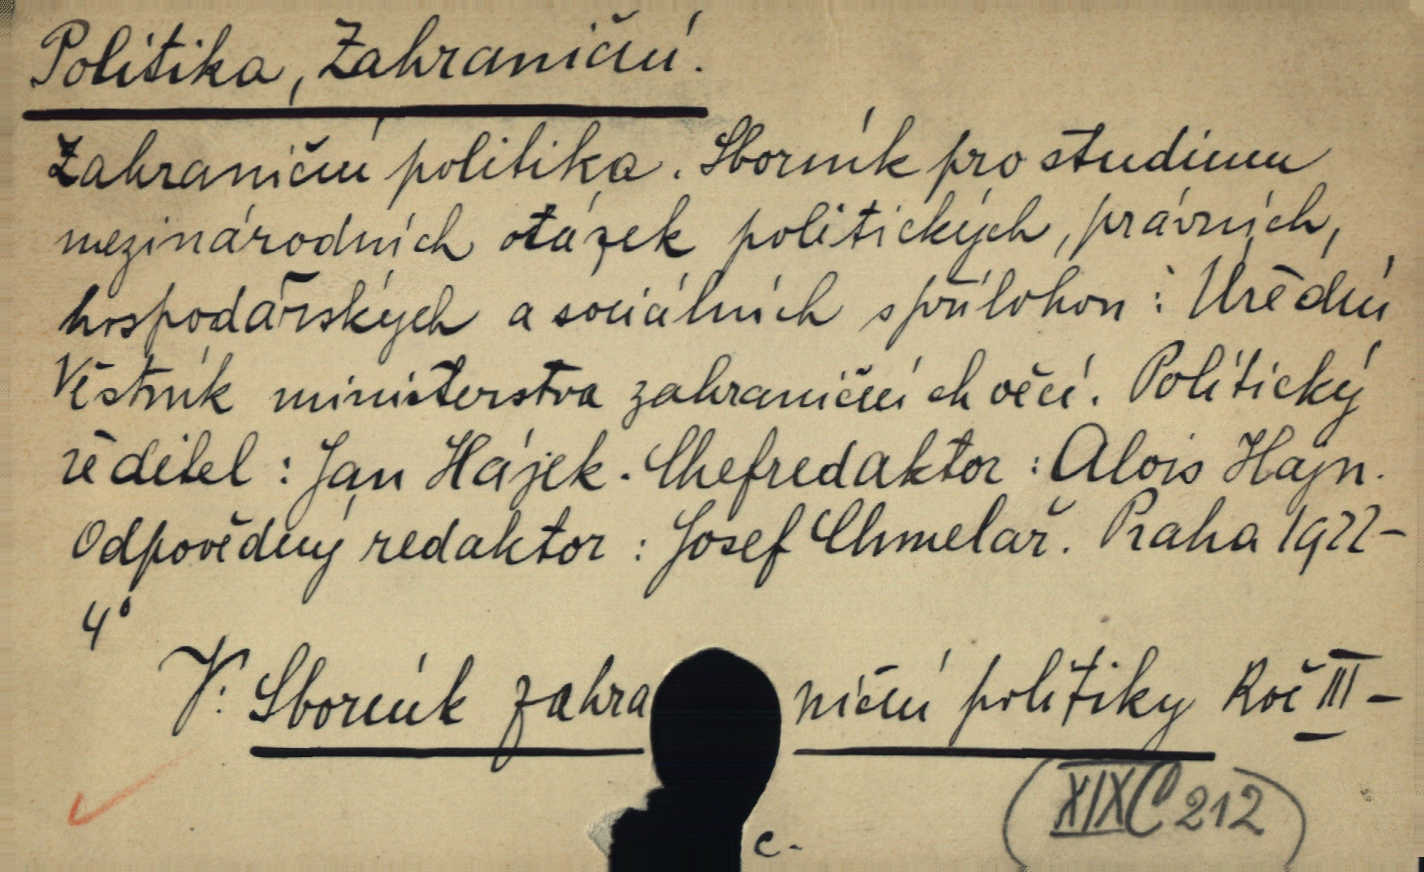 Politika, Zahraniční.
Zahraniční politika. Sborník pro studium
mezinárodních otázek politických, právních,
hospodářských a sociálních s přílohou: Úřední
Věstník ministerstva zahraničních věcí. Politický
ředitel: Jan Hájek. Chefredaktor: Alois Hajn.
Odpovědný redaktor: Josef Chmelař. Praha 1922-
4°
V: Sborník zahraniční politiky Roč III-
XIX C 212
c.